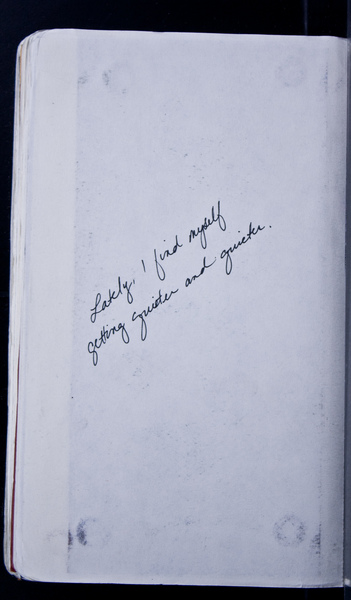 Lately, I find myself
getting quieter and quieter.